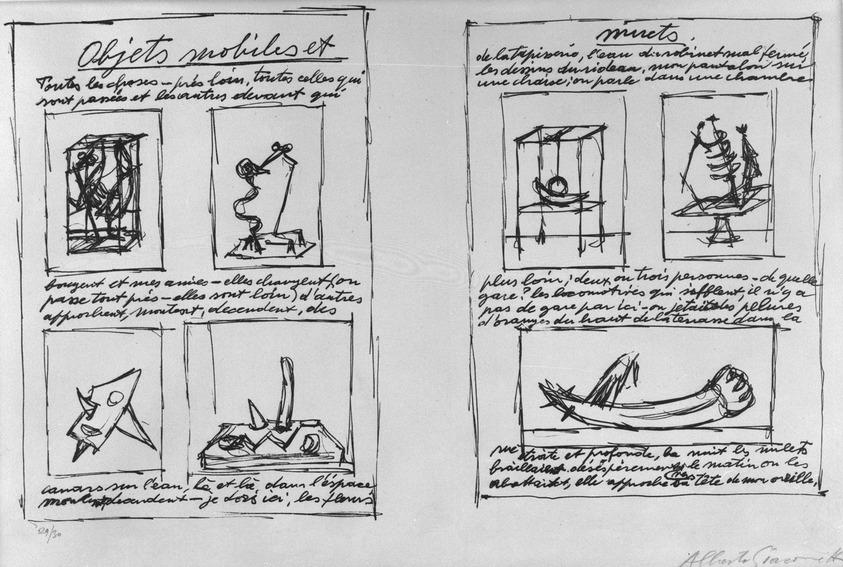 Objets mobiles et
Toutes les choses – près, loin, toutes celles qui
sont passées et les autres devant qui
bougent et mes amies – elles changent (on
passe tout près – elles sont loin) d'autres
approchent, montent, descendent, des
canards sur l'eau, là et là, dans l'espace
montent, descendent – je dors ici, les fleurs
29/30
muets.
de la tapisserie, l'eau du robinet mal fermé
les dessins du rideau, mon pantalon sur
une chaise, on parle dans une chambre
plus loin; deux ou trois personnes – de quelle
gare? les locomotives qui sifflent, il n'y a
pas de gare par ici – on jetait des pelures
d'oranges du haut de la terrasse dans la
rue étroite et profonde, la nuit les mulets
braillaient désespérément, le matin on les
abattait, elle approche sa tête de mon oreille,
Alberto Giacometti